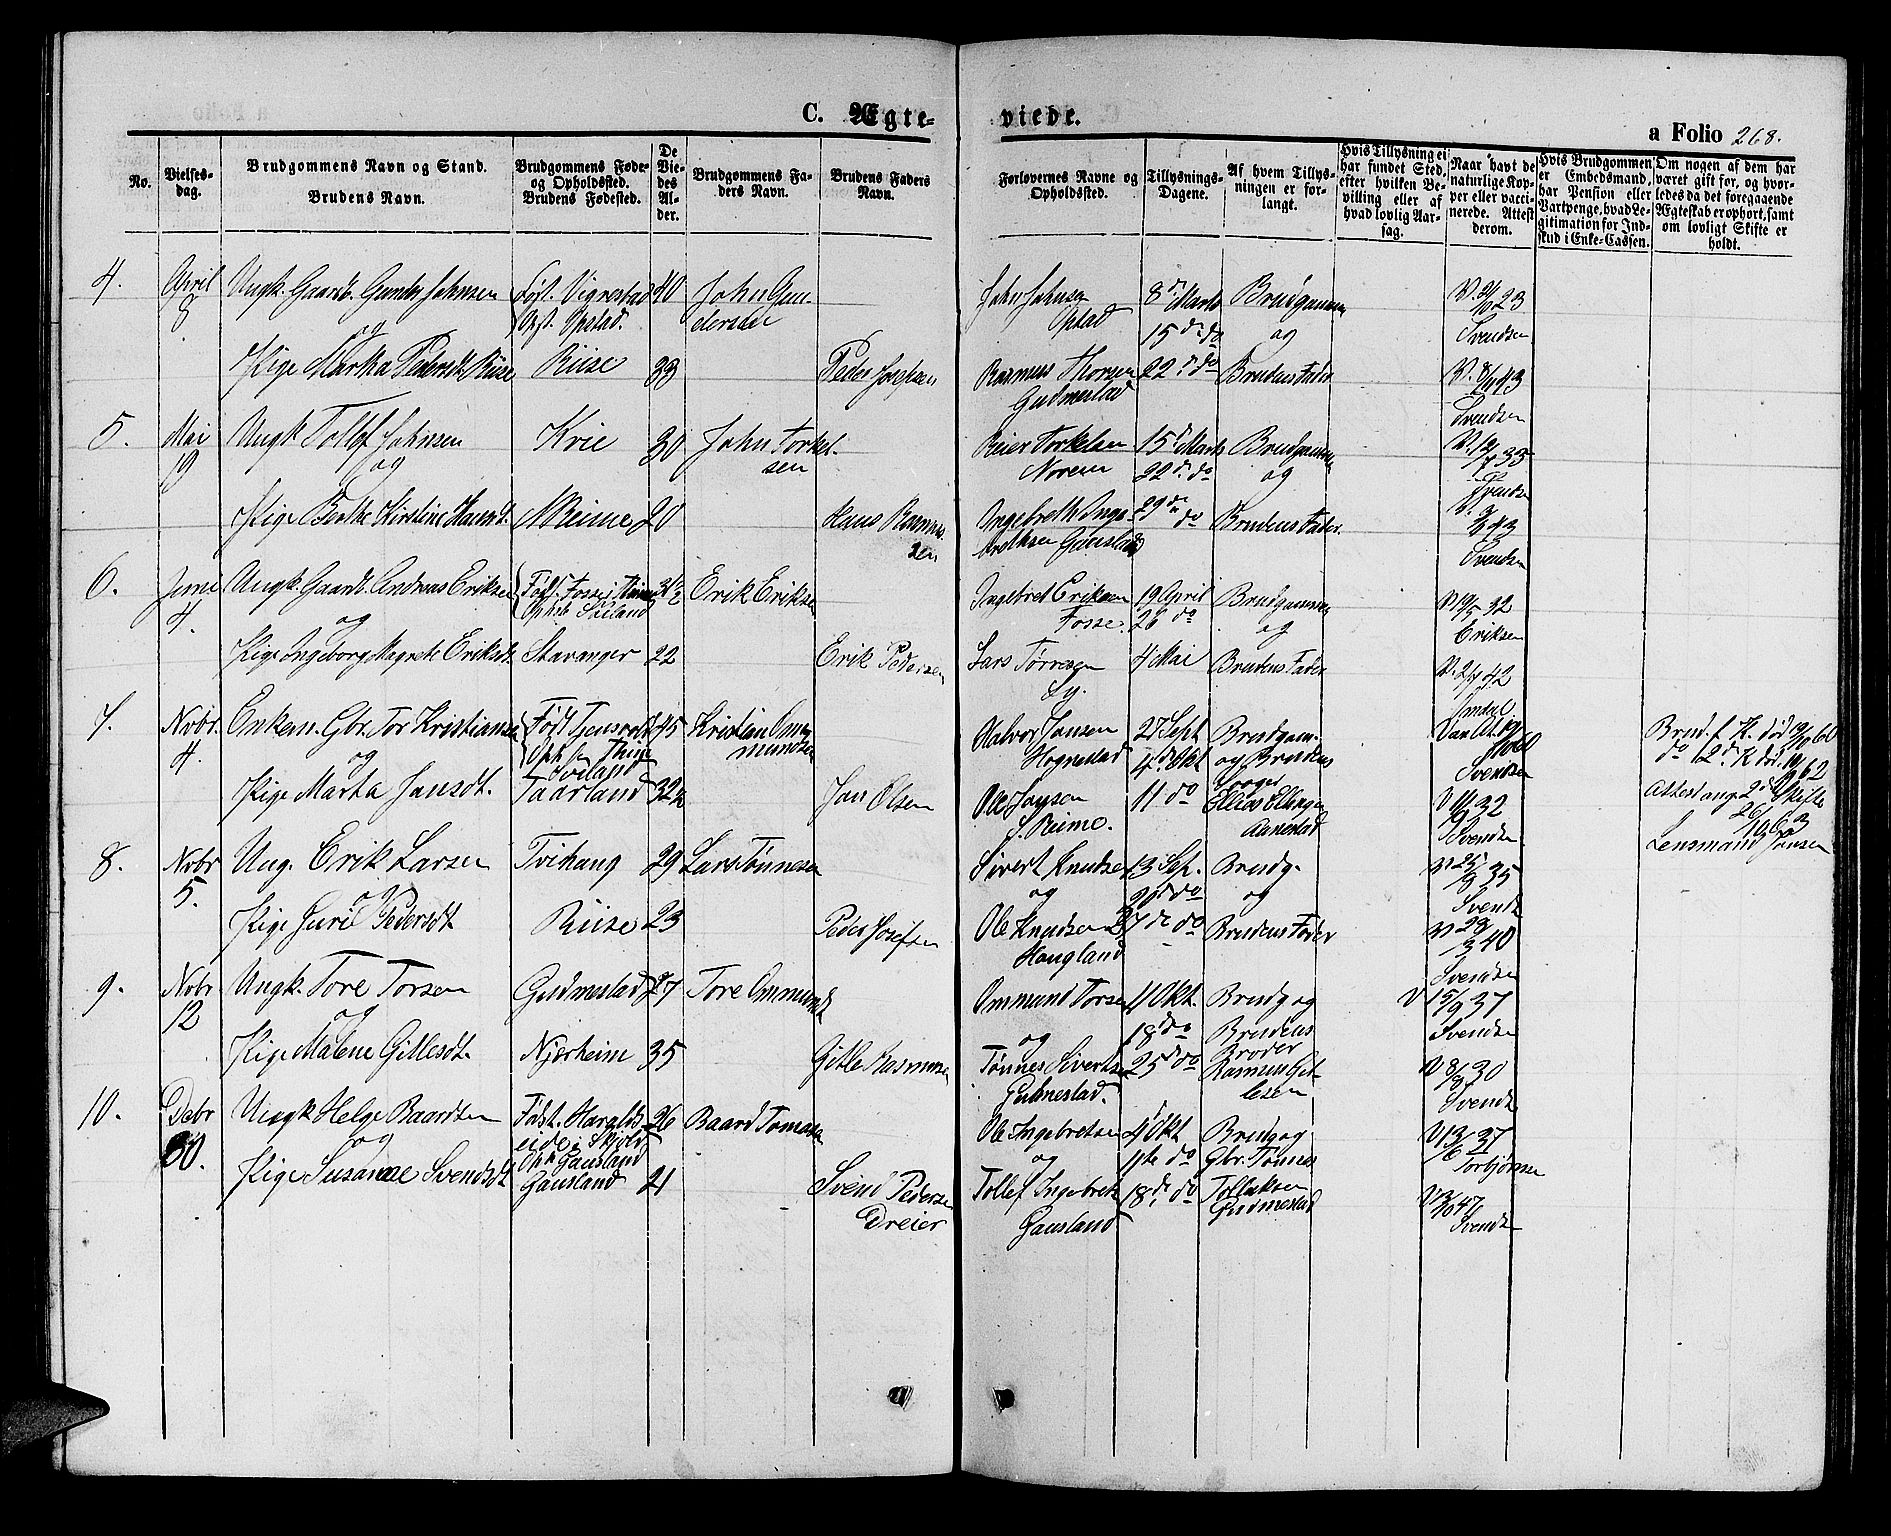 C. Ægte-
viede.
a Folio 268.
No.
Vielses-
dag.
Brudgommens Navn og Stand.
Brudens Navn.
Brudgommens Føde-
og Opholdssted.
Brudens Fødested.
De
Vie-
des
Al-
der.
Brudgommens Fa-
ders Navn.
Brudens Faders
Navn.
Forlovernes Navne og
Opholdssted.
Tillysnings-
Dagene.
Af hvem Tillys-
ningen er for-
langt.
Hvis Tillysning ei
har fundet Sted,
efter hvilken Be-
villing eller af
hvad lovlig Aar-
sag.
Naar havt de
naturlige Kop-
per eller vacci-
nerede. Attest
derom.
Hvis Brudgommen
er Embedsmand,
har Pension eller
Vartpenge, hvad Le-
gitimation for Ind-
skud i Enke-Cassen.
Om nogen af dem har
været gift før, og hvor-
ledes da det foregaaende
Ægteskab er ophørt, samt
om lovligt Skifte er
holdt.
4.
April
8
Ungk. Gaardb. Gunder Johnsen
og
Pige Martha Pedersdt. Riise
Født. Vigrestad
Opst. Opstad.
Riise
40
33
John Gun
dersen
Peder Josefsen
John Johnsen
Opstad
Rasmus Thorsen
Gudmestad
8de Marts
15de do
22de do
Brudgommen
og
Brudens Fader
23
Svendsen
43
Svendsen
5.
Mai
19
Ungk. Tollef Johnsen
og
Pige Berthe Kirstine Hansdt.
Krie
N Reime
30
20
John Torkel-
sen
Hans Rasmus-
sen
Reier Torkelsen
Norem
Ingebreth Inge-
brethsen Gausland
15de Marts
22de do
29de do
Brudgommen
og
Brudens Fader.
V. 12/7 35
Svendsen
43
Svendsen
6.
June
4.
Ungk. Gaardb. Andreas Eriksen
og
Pige Ingeborg Magrete Eriksdt.
Født. Fosse i Thime
Opholdt Skiland
Stavanger
22
Erik Eriksen
Erik Pedersen
Ingebret Eriksen
Fosse.
Lars Tørresen
Ly.
19 April
26 do
4 Mai
Brudgommen
og
Brudens Fader
V 19/5 32
Eriksen
V. 2/7 42
7.
Novbr.
4.
Enkem. Gbr. Tor Kristiansen
og
Pige Marta Jansdt.
Født Tjensvold
Taarland
45
32
Kristian Om
mundsen
Jan Olsen
Halvor Jansen
Hognestad
Ole Jansen
S. Reime.
27 Sept
4de Okt
11 do
Brudgom.
og Brudens
Svoger
Ellias Ellingsen
Aanestad
Svendsen
32
Svendsen
Attest ang. 2de Skifte
Lensmand Jansen
8.
Novbr
5.
Ung. Erik Larsen
og
Pige Guri Pedersdt
Tvihaug
Riise
29
23
Lars Tønnesen
Peder Josefsen
Sivert Knudsen
og
Ole Knudsen
Haugland
13 Sep.
20de do
27de do
Brudg.
og
Brudens Fader
V 25/9 35
Svends
40
Svendsen
9.
Novbr
12
Ungk. Tore Torsen
og
Pige Malene Gitlesdt.
Gudmestad
Njærheim
27
35
Tore Ommundt
Gitle Rasmusen
Ommund Torsen
og
Tønnes Sivertsen
Gudmestad.
4 Okt.
18de do
25de do
Brudg og
Brudens
Broder
Rasmus Git-
lesen
V 15/9 37
Svendsen
V 8/9 30
Svends
10.
Debr
30.
Ungk Helge Baardsen
og
Pige Susanne Svendsdt
Født. Haralds
eide i Skjold
Oph Gausland
Gausland
26
21
Baard Tomasen
Svend Pedersen
Dreier
Ole Ingebretsen
og
Tollef Ingebrets
Gausland
4 Okt
11te do
18de do
Brudg og
Gbr. Tønnes
Tollaksen
Gudmestad
37
Torbjørnsen
47
Svendsen